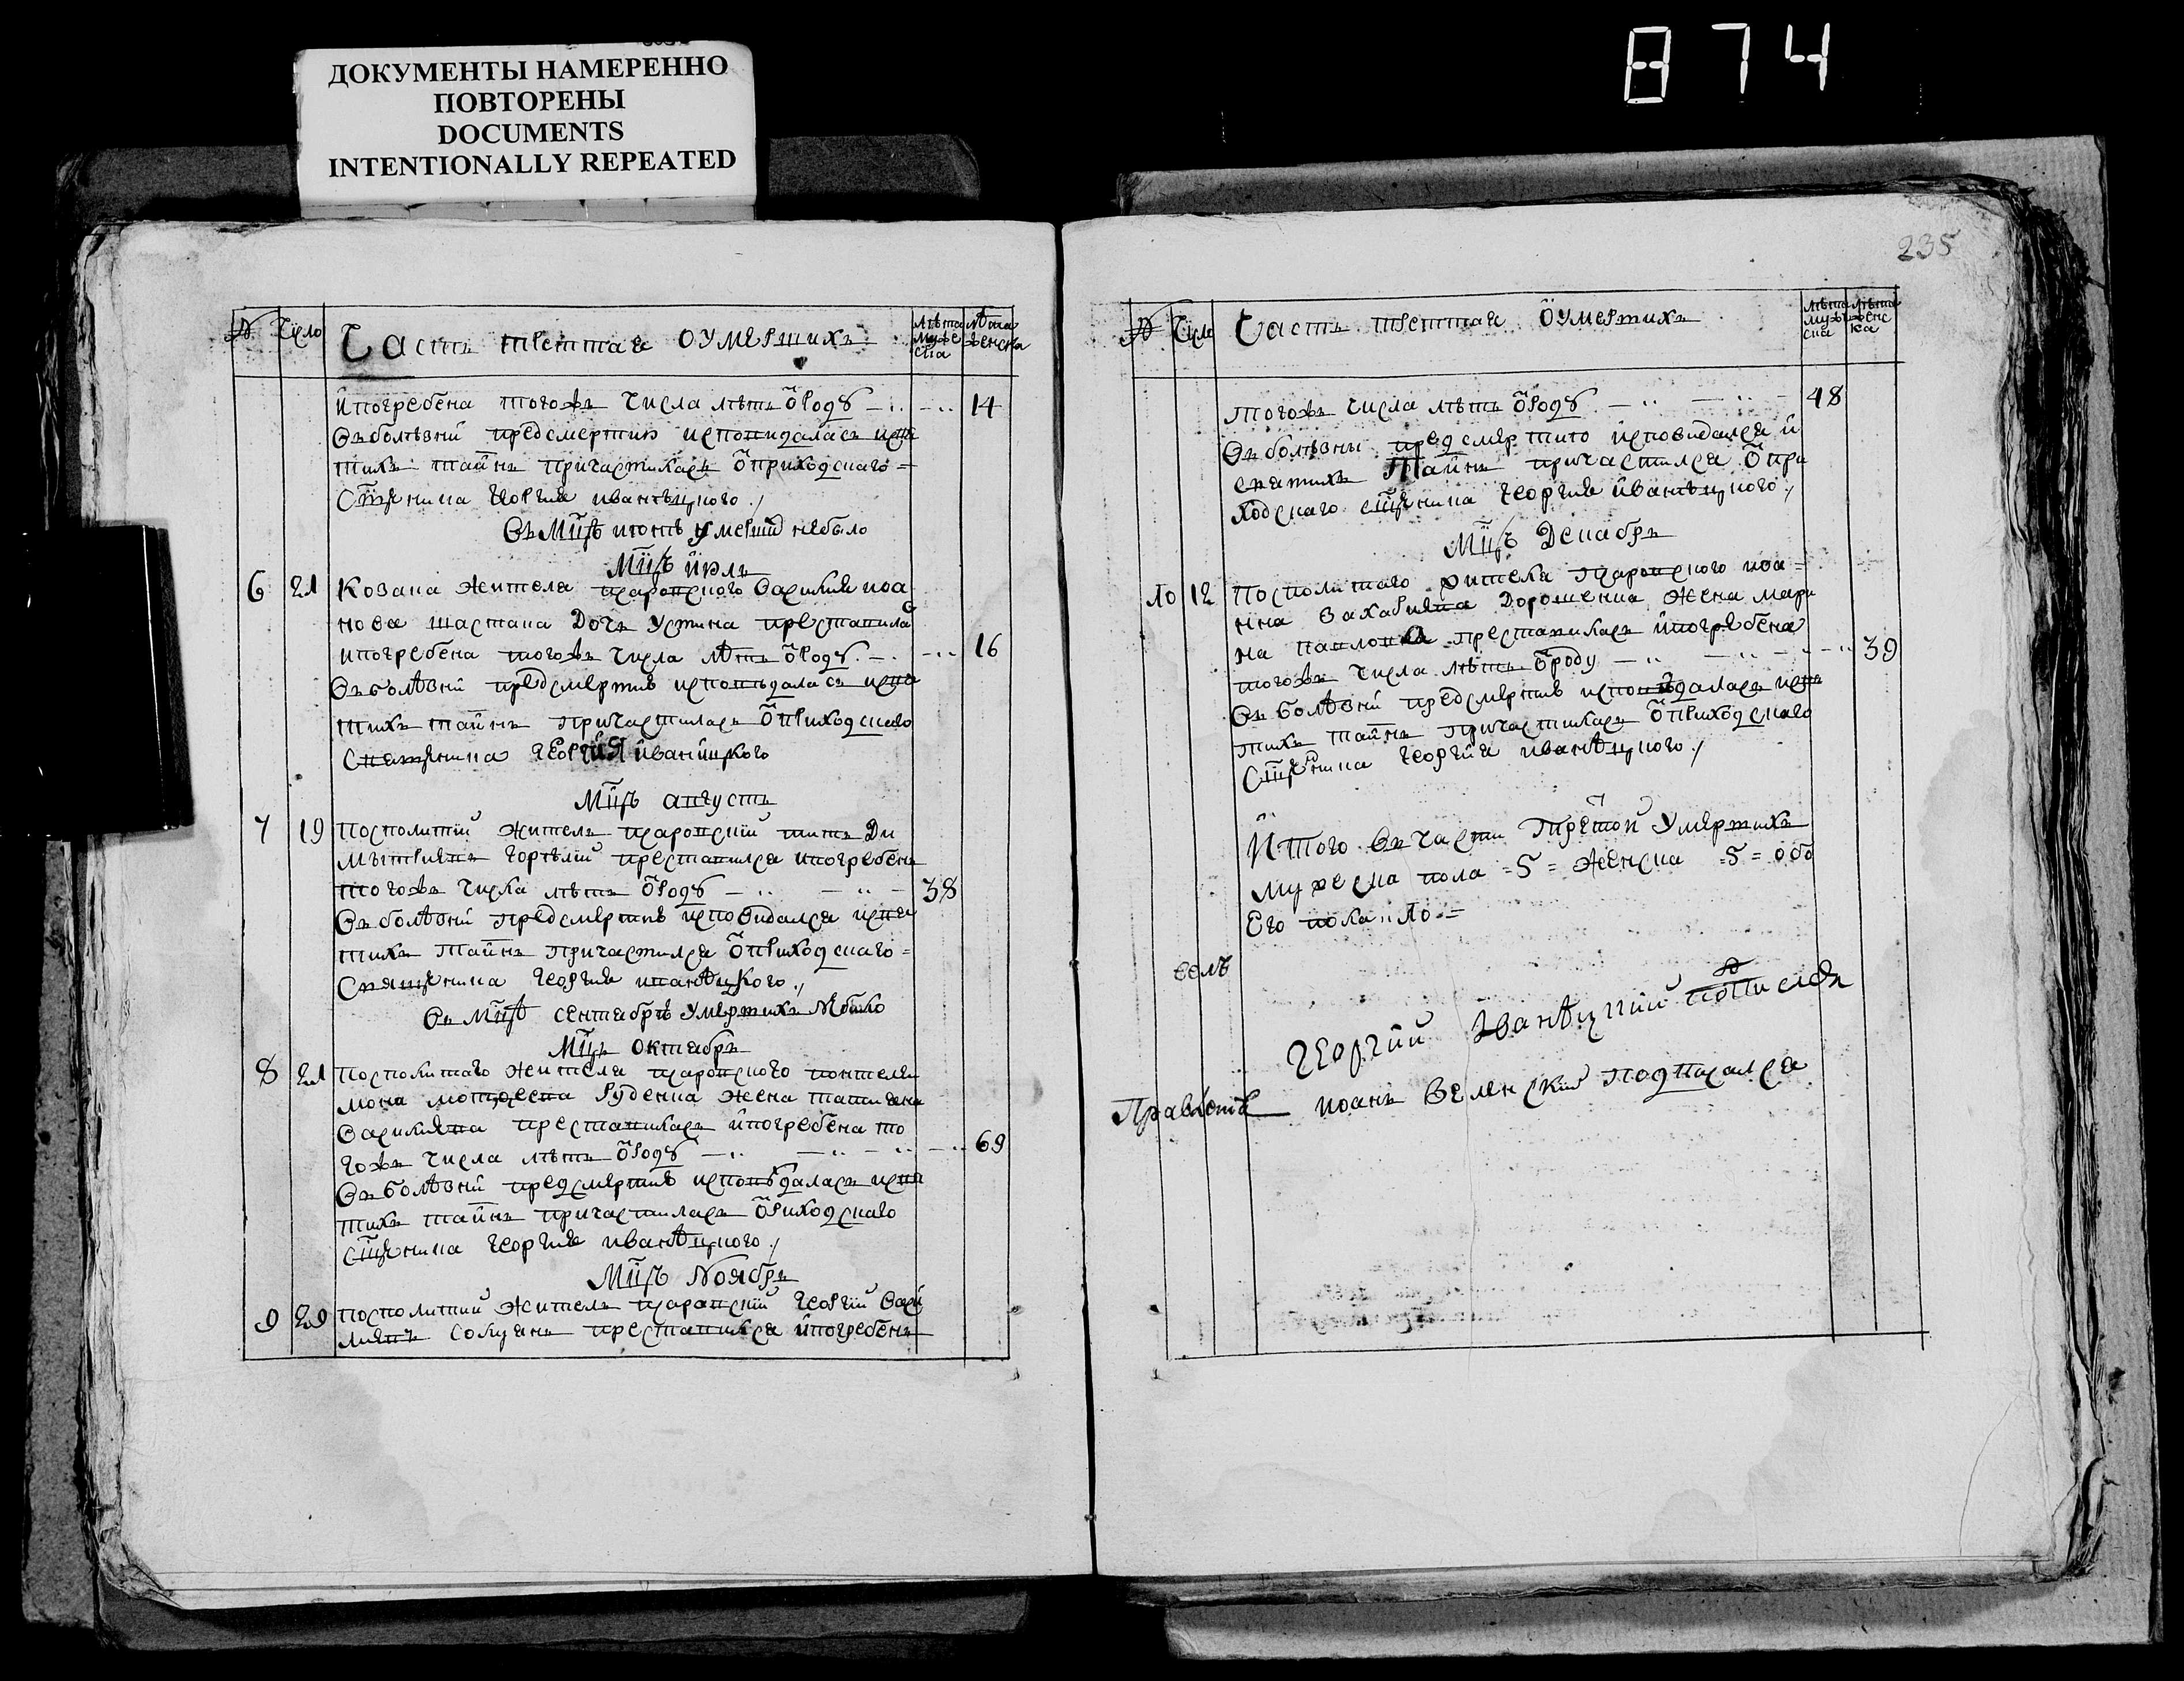 874
ДОКУМЕНТЫ НАМЕРЕННО
ПОВТОРЕНЫ
DOCUMENTS
INTENTIONALLY REPEATED
№ Число Часть треттая оумершихъ лѣта мужеска лѣта женска
ипогребена тогожъ числа лѣтъ ѿ роду 14
въ болѣзнѣ предсмертию исповидалась исвя
тихъ таинъ причастилась ѿ приходскаго
сщенника Георгия Иванѣцкого
въ мцѣ июнѣ умерших небыло
Мцъ июль
6 21 Козака жителя царовского Василия ива
нова дочь Устина преставилас
ипогребена тогожъ числа лѣтъ ѿ роду 16
въ болѣзнѣ предсмертию исповѣдалась исвя
тихъ таинъ причастилась ѿ приходскаго
священника Георгия Иваницкого
Мцъ августъ
7 19 Посполитий житель царовский Ди
митриевъ преставился ипогребенъ
тогожъ числа лѣтъ ѿ роду 38
въ болѣзнѣ предсмертию исповидался исвя
тихъ таинъ причастился ѿ приходскаго
священника Георгия Иванѣцкого
въ мцѣ сентябрѣ умершихъ небыло
Мцъ октябрь
8 21 Посполитаго жителя царовского пантели
мона Руденка жена татияна
Василиева преставилась ипогребена то
гожъ числа лѣтъ ѿ роду 69
въ болѣзнѣ предсмертию исповѣдалась исвя
тихъ таинъ причастилась ѿ приходскаго
сщенника Георгия Иванѣцкого
Мцъ ноябрь
9 29 Посполитий житель царовский Георгий Васи
лиевъ преставился ипогребенъ
235
№ Число Часть треттая оумершихъ лѣта мужеска лѣта женска
тогожъ числа лѣтъ ѿ роду 48
въ болѣзны предсмертию исповидался и
святихъ Таинъ причастился ѿ при
ходскаго сщенника Георгия Иванѣцкого
Мцъ Декабрь
10 12 Посполитаго жителя царовского иоа
нна Захариева Дорошенка жена мари
на павлова преставилась ипогребена
тогожъ числа лѣтъ ѿ роду 39
въ болѣзнѣ предсмертию исповѣдалась исвя
тихъ таинъ причастилась ѿ приходскаго
сщенника Георгия Иванѣцкого
Итого въ части третой умершихъ
мужеска пола =5= женска =5= обо
его пола 10 =
Георгий Иванѣцкий подписался
иоанъ Веленский подписался